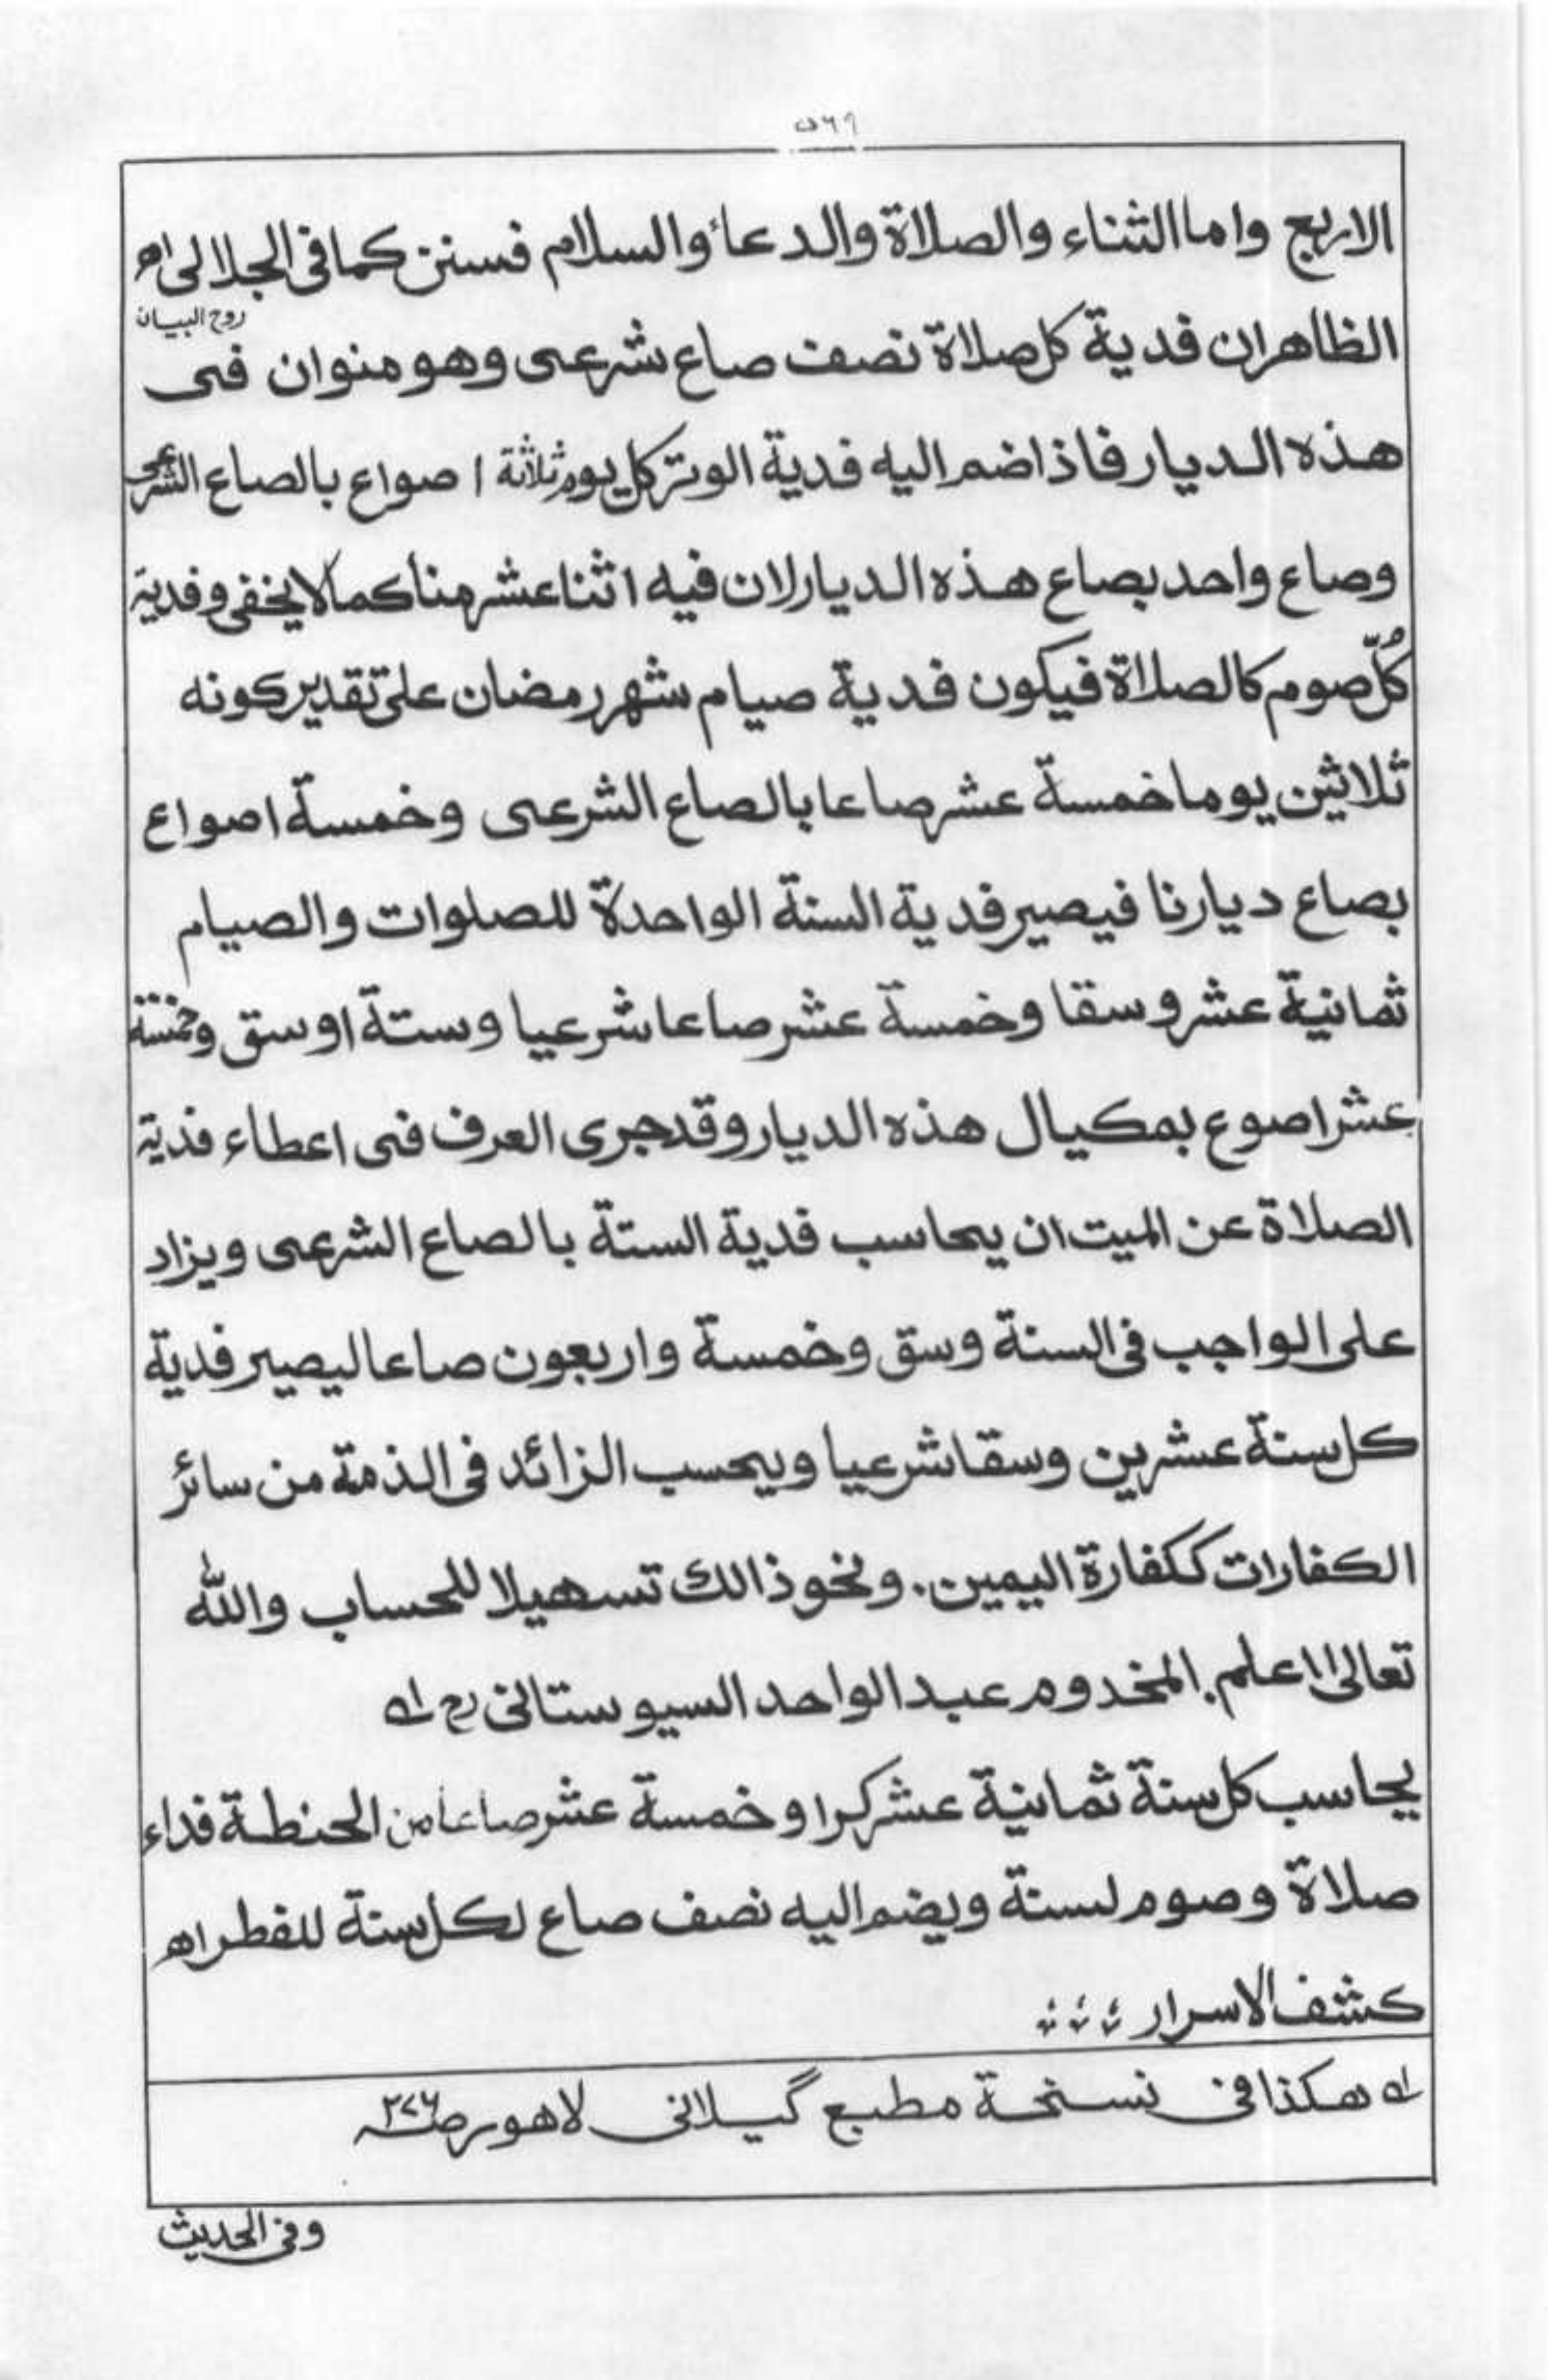 ٥٦٩
الاربع واما الثناء والصلاة والدعاء والسلام فسنن كما فى الجلالى اھ
روح البيان
الظاهران فدية كل صلاة نصف صاع شرعى وهو منوان فى
هذه الديار فاذا ضم اليه فدية الوتر كل يوم ثلاثة ا صواع بالصاع الشرعى
وصاع واحد بصاع هذه الديار لان فيه اثنا عشر منا كما لا يخفى وفدية
كُلّ صوم كالصلاة فيكون فدية صيام شهر رمضان على تقدير كونه
ثلاثين يوما خمسة عشر صاعا بالصاع الشرعى وخمسة اصواع
بصاع ديارنا فيصير فدية السنة الواحدة للصلوات والصيام
ثمانية عشر وسقا وخمسة عشر صاعا شرعيا وستة اوسق وخمسة
عشر اصوع بمكيال هذه الديار وقد جرى العرف فى اعطاء فدية
الصلاة عن الميت ان يحاسب فدية الستة بالصاع الشرعى ويزاد
على الواجب فى السنة وسق وخمسة واربعون صاعا ليصير فدية
كل سنة عشرين وسقا شرعيا ويحسب الزائد فى الذمة من سائر
الكفارات ككفارة اليمين. ونحو ذالك تسهيلا للحساب والله
تعالى اعلم. المخدوم عبد الواحد السيوستانى رح له
يحاسب كل سنة ثمانية عشر كرا وخمسة عشر صاعا من الحنطة فداء
صلاة وصوم لسنة ويضم اليه نصف صاع لكل سنة للفطر اھ
كشف الاسرار
له هكذا فى نسخة مطبع گيلانى لاهور ص٢٧٦
وفى الحديث